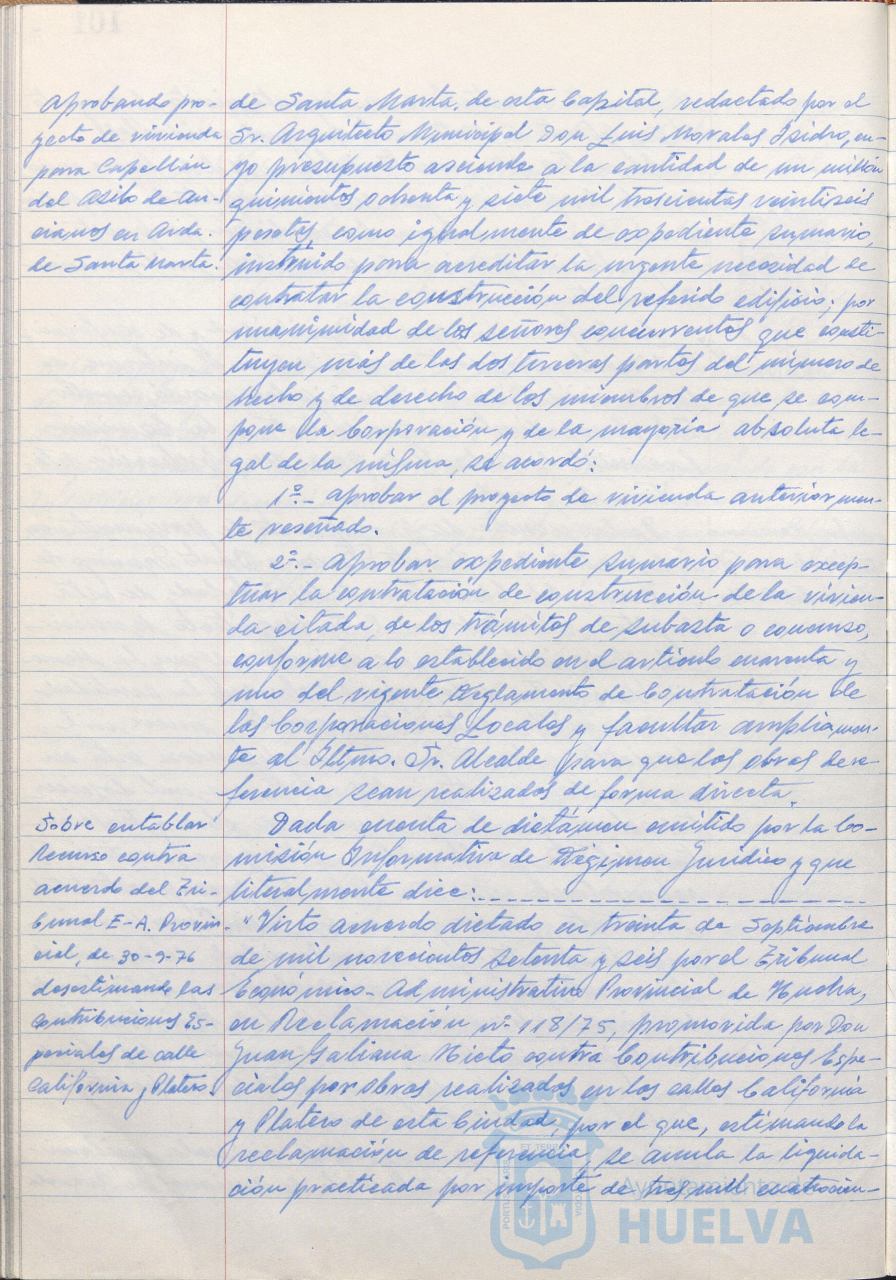 Aprobando pro-
yecto de vivienda
para Capellán
del Asilo de An-
cianos en Avda.
de Santa Marta.
de Santa Marta, de esta Capital, redactado por el
Sr. Arquitecto Municipal Don Luis Morales Isidro, cu-
yo presupuesto asciende a la cantidad de un millón
quinientos ochenta y siete mil trescientas veintiseis
pesetas, como igualmente de expediente sumario,
instruido para acreditar la urgente necesidad de
contratar la construcción del referido edificio; por
unanimidad de los señores concurrentes que consti-
tuyen más de las dos terceras partes del número de
hecho y de derecho de los miembros de que se com-
pone la Corporación y de la mayoría absoluta le-
gal de la misma, se acordó:
1º.- Aprobar el proyecto de vivienda anteriormen-
te reseñado.
2º.- Aprobar expediente sumario para excep-
tuar la contratación de construcción de la vivien-
da citada, de los trámites de subasta o concurso,
conforme a lo establecido en el artículo cuarenta y
uno del vigente Reglamento de Contratación de
las Corporaciones Locales y facultar ampliamen-
te al Iltmo. Sr. Alcalde para que las obras de re-
ferencia sean realizadas de forma directa.
Sobre entablar
recurso contra
acuerdo del Tri-
bunal E-A. Provin-
cial, de 30-9-76
desestimando las
Contribuciones Es-
peciales de calle
California y Platero.
Dada cuenta de dictámen emitido por la Co-
misión Informativa de Régimen Jurídico y que
literalmente dice:
"Visto acuerdo dictado en treinta de Septiembre
de mil novecientos setenta y seis por el Tribunal
Económico-Administrativo Provincial de Huelva,
en Reclamación nº 118/75, promovida por Don
Juan Galiana Nieto contra Contribuciones Espe-
ciales por obras realizadas en las calles California
y Platero de esta Ciudad, por el que, estimando la
reclamación de referencia, se anula la liquida-
ción practicada por importe de tres mil cuatrocien-
Ayuntamiento de
HUELVA